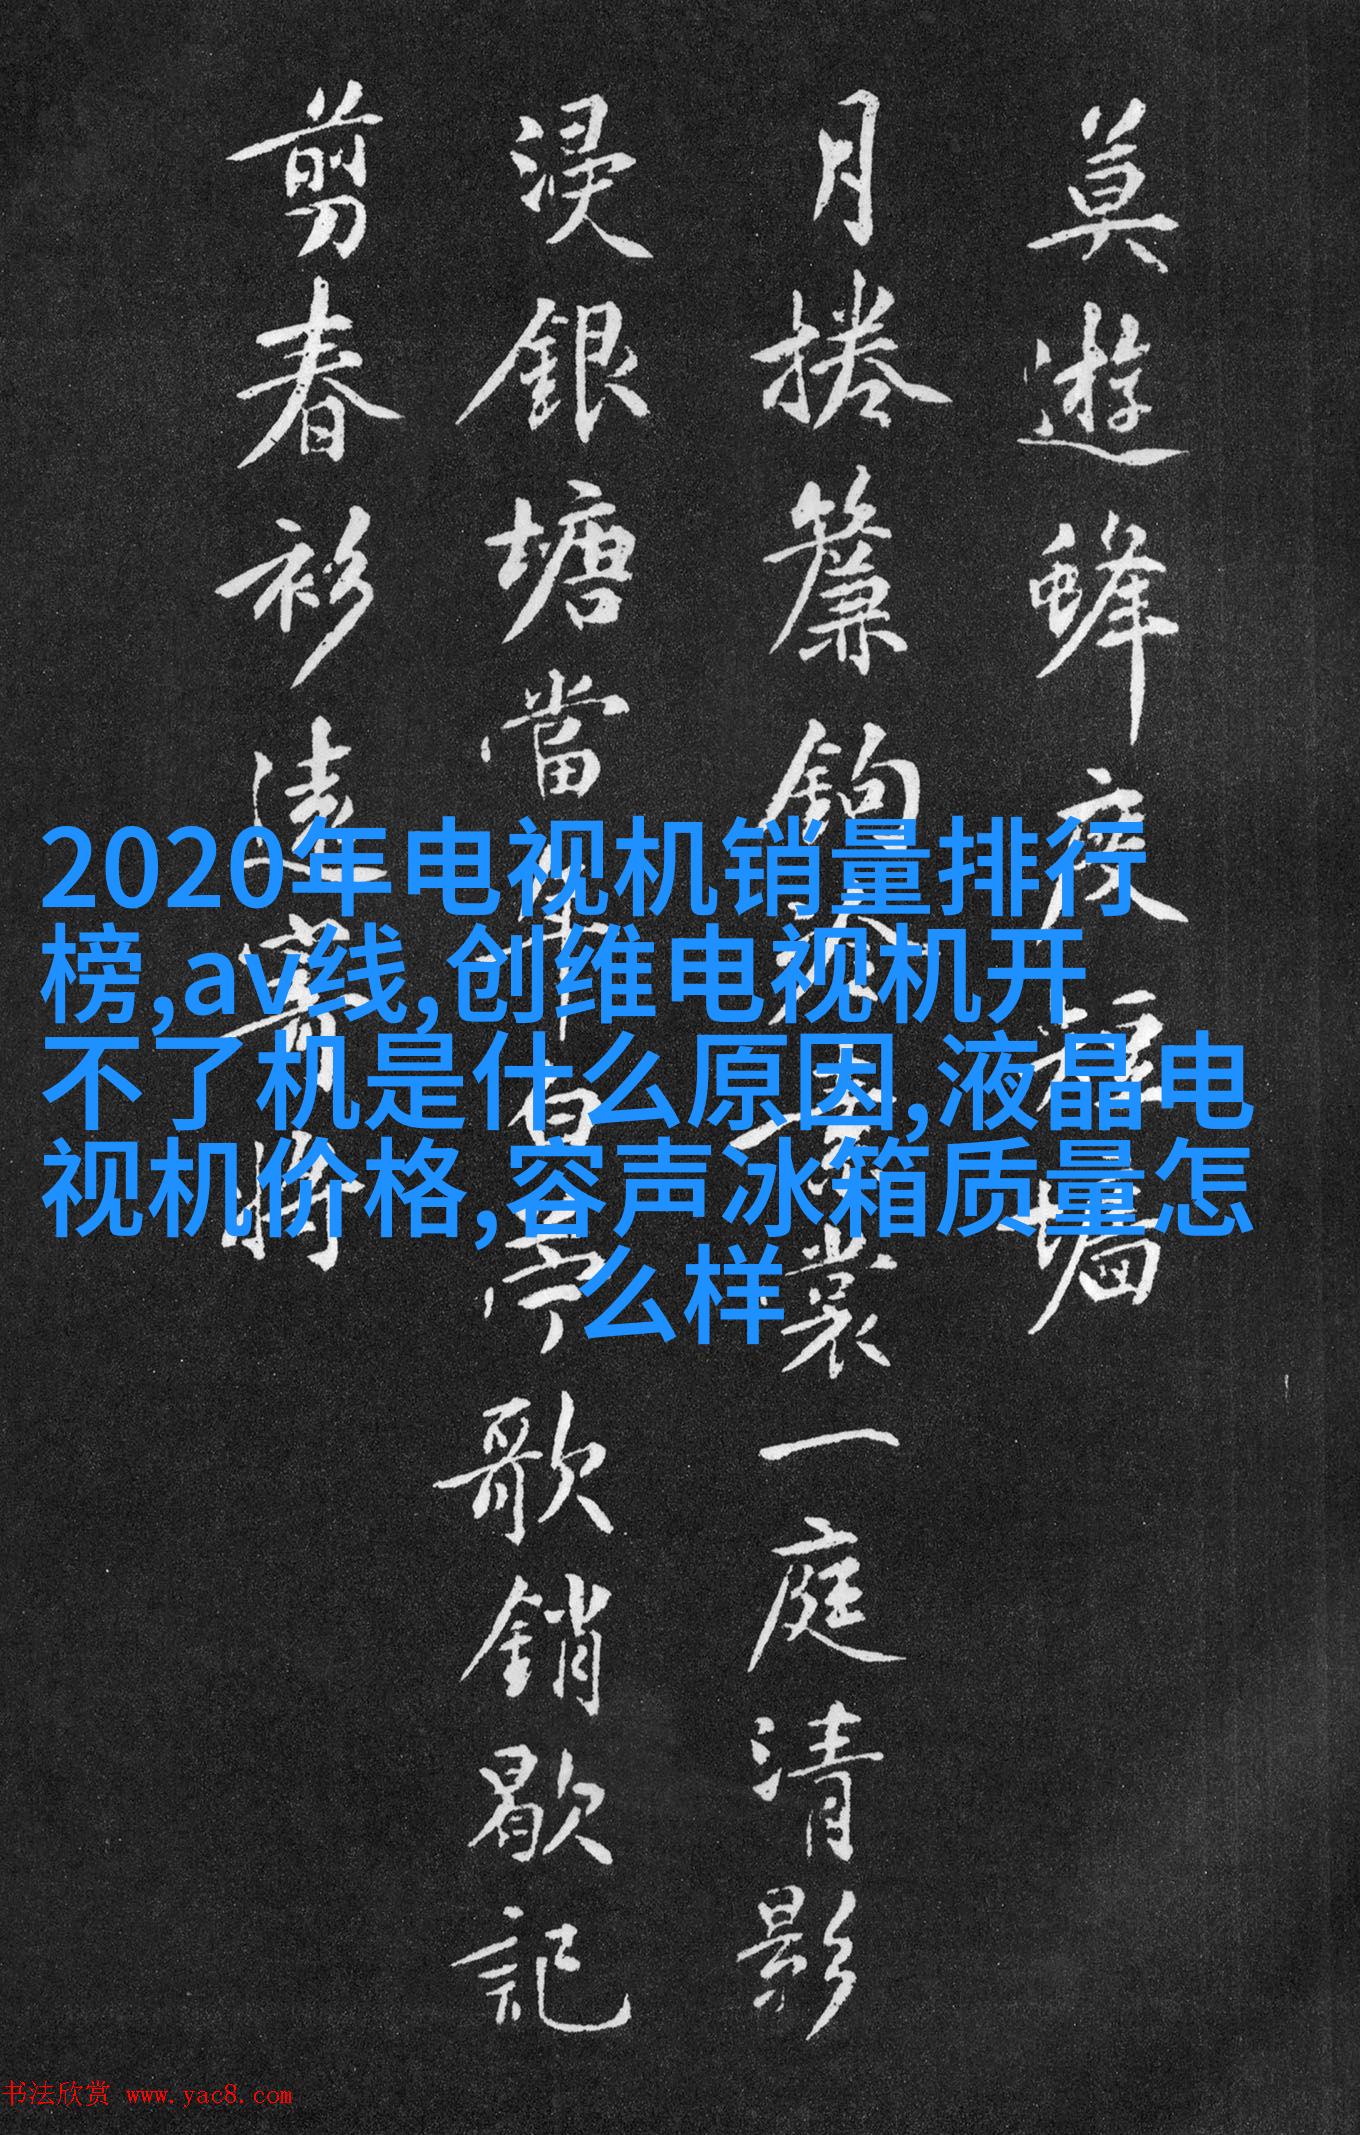 莫遊蜂度短墻
月捲簾鉤裳一庭清影
浸銀塘當年歌銷歇記
剪春衫遠寄將
2020年电视机销量排行
榜,av线,创维电视机开
不了机是什么原因,液晶电
视机价格,容声冰箱质量怎
么样
书法欣赏 www.yac8.com